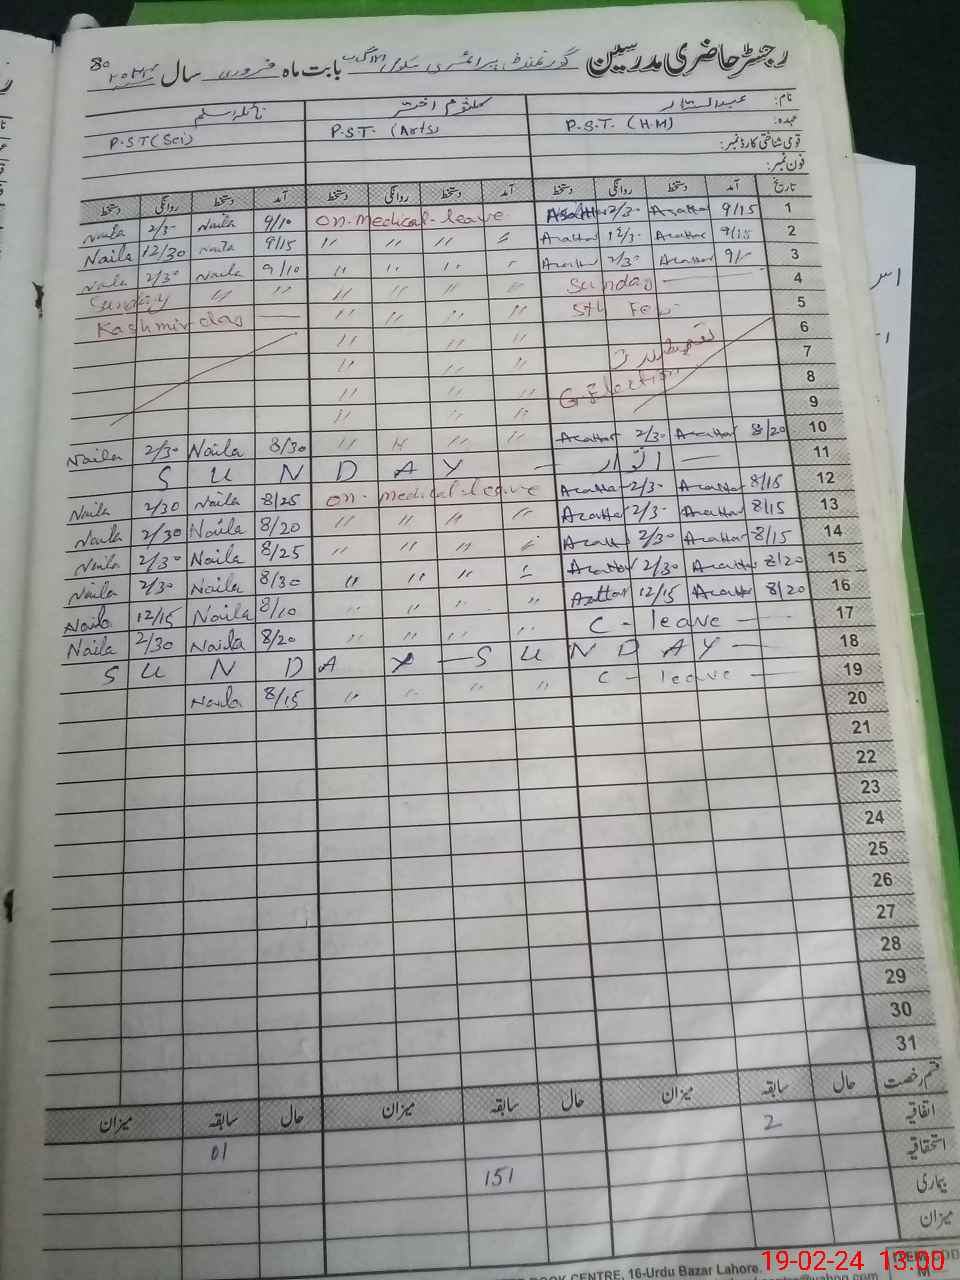 80
رجسٹر حاضری مدرسین گورنمنٹ پرائمری سکول بابت ماہ فروری سال ۲۰۲۴
نام: عبدالستار کلثوم اختر نائلہ اسلم
عہدہ: P.S.T. (H.M) P.S.T. (Arts) P.S.T (Sci)
قومی شناختی کارڈ نمبر:
فون نمبر:
تاریخ آمد دستخط روانگی دستخط آمد دستخط روانگی دستخط آمد دستخط روانگی دستخط
Naila 2/3- Naila 9/10 on-medical-leave Asattar 2/3- Asattar 9/15 1
Naila 12/30 Naila 9/15 " " " " Asattar 12/3- Asattar 9/15 2
Naila 2/30 Naila 9/10 " " " " Asattar 2/30 Asattar 9/- 3
Sunday " " " " " " Sunday 4
Kashmir day " " " " 5th Feb 5
" " " " 6
" " " " 7
" " " " G Election 8
" " " " 9
Naila 2/30 Naila 8/30 " " " " Asattar 2/30 Asattar 8/20 10
S U N D A Y اتوار 11
Naila 2/30 Naila 8/25 on-medical-leave Asattar 2/3- Asattar 8/15 12
Naila 2/30 Naila 8/20 " " " " Asattar 2/3- Asattar 8/15 13
Naila 2/30 Naila 8/25 " " " " Asattar 2/30 Asattar 8/15 14
Naila 2/30 Naila 8/30 " " " " Asattar 2/30 Asattar 8/20 15
Naila 12/15 Naila 8/10 " " " " Asattar 12/15 Asattar 8/20 16
Naila 2/30 Naila 8/20 " " " " C - leave 17
S U N D A Y - S U N D A Y 18
Naila 8/15 " " " " C - leave 19
20
21
22
23
24
25
26
27
28
29
30
31
قسم رخصت حال سابقہ میزان حال سابقہ میزان حال سابقہ میزان
اتفاقیہ 2 01
استحقاقیہ 151
بیماری
میزان
BOOK CENTRE, 16-Urdu Bazar Lahore.
19-02-24 13:00